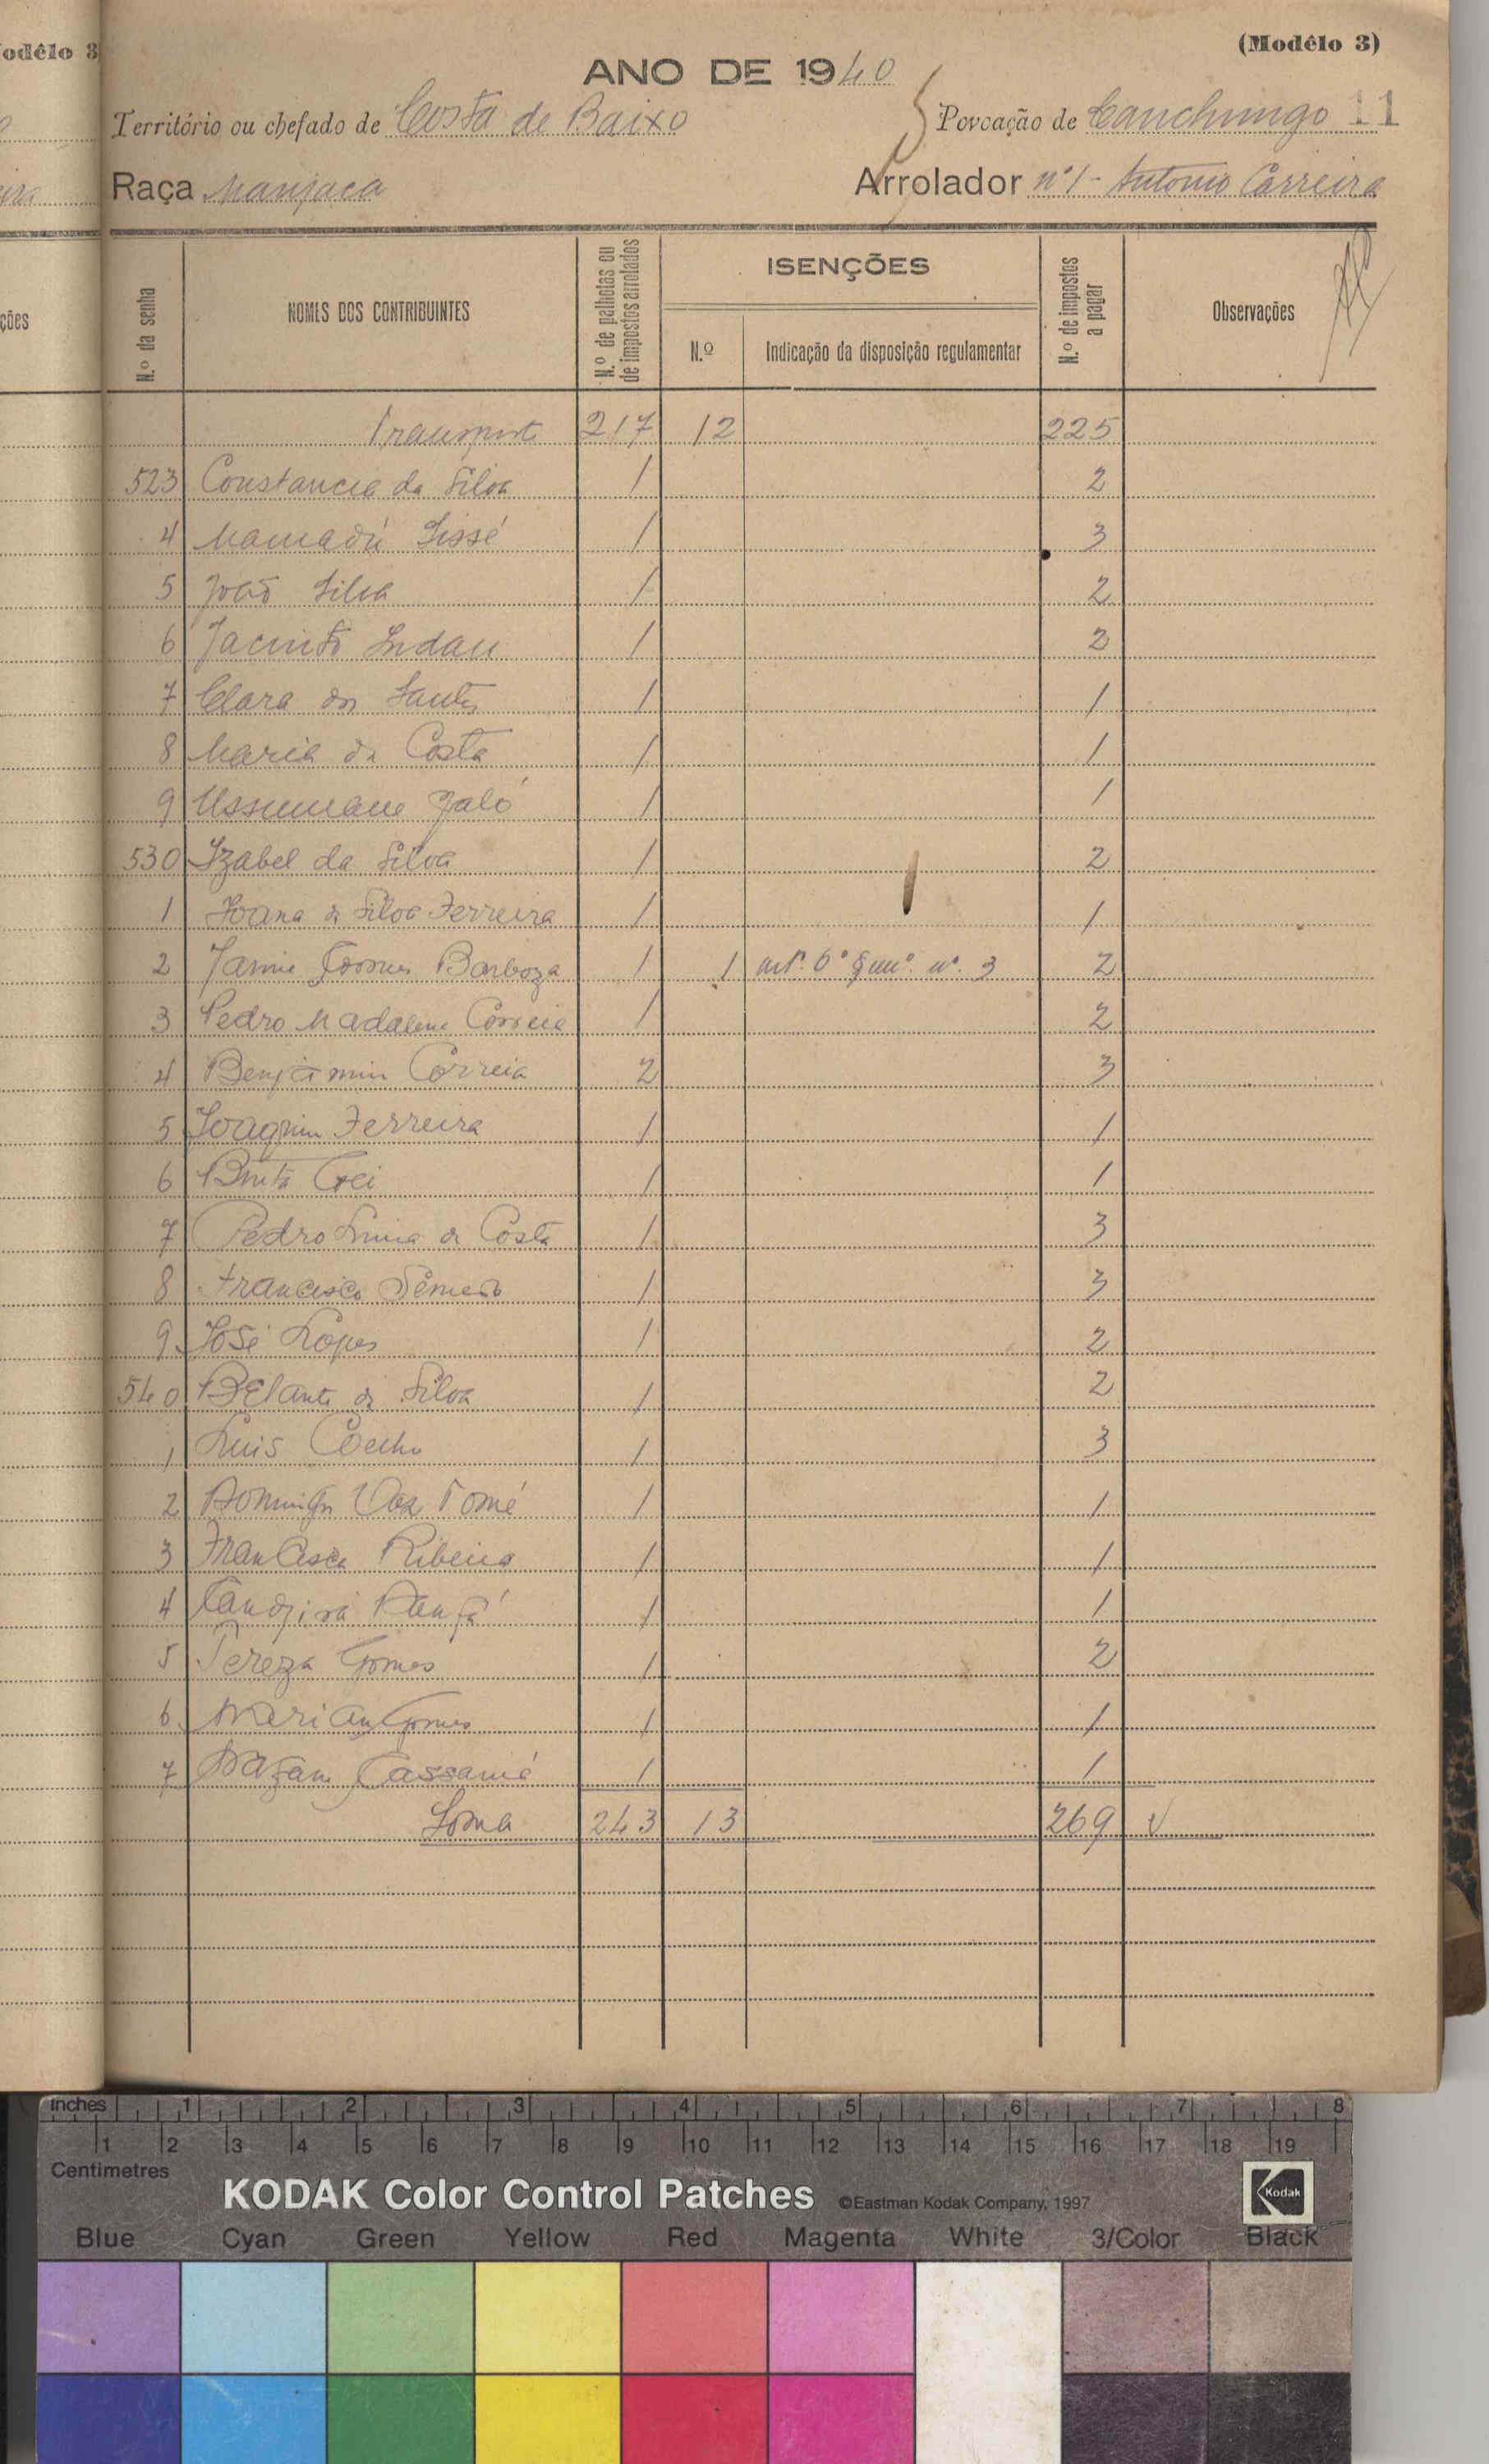 odêlo 3
(Modêlo 3)
ANO DE 1940
Território ou chefado de Costa de Baixo
Povoação de Canchungo 11
Raça Manjaca
Arrolador nº 1 - Antonio Carreira
ções
N.º da senha
NOMES DOS CONTRIBUINTES
N.º de palhotas ou de impostos arrolados
ISENÇÕES
N.º
Indicação da disposição regulamentar
N.º de impostos a pagar
Observações
Transporte 217 12 225
523 Constancia da Silva 1 2
4 Mamadú Sissé 1 3
5 João Silva 1 2
6 Jacinto Indau 1 2
7 Clara dos Santos 1 1
8 Maria da Costa 1 1
9 Ussumane Jaló 1 1
530 Izabel da Silva 1 2
1 Joana da Silva Ferreira 1 1
2 Jaime Gomes Barboza 1 1 artº. 6º § unº. nº. 3 2
3 Pedro Madalena Correia 1 2
4 Benjamim Correia 2 3
5 Joaquim Ferreira 1 1
6 1 1
7 Pedro da Costa 1 3
8 Francisco 1 3
9 José Lopes 1 2
540 da Silva 1 2
1 Luis Coelho 1 3
2 Domingos Vaz Tomé 1 1
3 Francisca Ribeiro 1 1
4 1 1
5 Tereza Gomes 1 2
6 Gomes 1 1
7 Cassamá 1 1
Soma 243 13 269
inches 1 2 3 4 5 6 7 8
1 2 3 4 5 6 7 8 9 10 11 12 13 14 15 16 17 18 19
Centimetres
KODAK Color Control Patches ©Eastman Kodak Company, 1997 Kodak
Blue Cyan Green Yellow Red Magenta White 3/Color Black